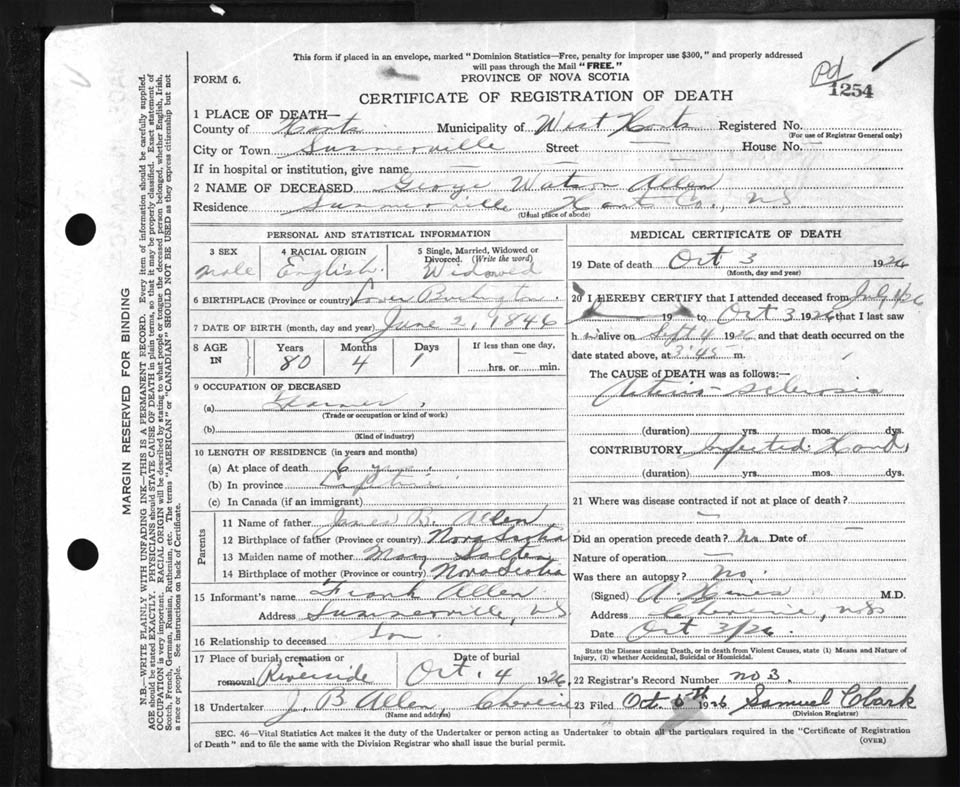 This form if placed in an envelope, marked "Dominion Statistics—Free, penalty for improper use $300," and properly addressed
will pass through the Mail "FREE."
FORM 6.
PROVINCE OF NOVA SCOTIA
Pd
1254
CERTIFICATE OF REGISTRATION OF DEATH
1 PLACE OF DEATH—
County of Hants Municipality of West Hants Registered No.
(For use of Registrar General only)
City or Town Summerville Street — House No. —
If in hospital or institution, give name —
2 NAME OF DECEASED George Watson Allen
Residence Summerville Hants Co., NS
(Usual place of abode)
PERSONAL AND STATISTICAL INFORMATION
3 SEX 4 RACIAL ORIGIN 5 Single, Married, Widowed or
Divorced. (Write the word)
Male English. Widowed
6 BIRTHPLACE (Province or country) Lower Burlington.
7 DATE OF BIRTH (month, day and year) June 2, 1846
8 AGE IN Years Months Days If less than one day,
80 4 1 — hrs. or min.
9 OCCUPATION OF DECEASED
(a) Farmer
(Trade or occupation or kind of work)
(b)
(Kind of industry)
10 LENGTH OF RESIDENCE (in years and months)
(a) At place of death 6
(b) In province
(c) In Canada (if an immigrant)
Parents
11 Name of father James B. Allen
12 Birthplace of father (Province or country) Nova Scotia
13 Maiden name of mother Mary Salter
14 Birthplace of mother (Province or country) Nova Scotia
15 Informant's name Frank Allen
Address Summerville, NS
16 Relationship to deceased Son
17 Place of burial, cremation or removal Riverside Date of burial Oct. 4 1926.
18 Undertaker J. B Allen, Cheverie
(Name and address)
MEDICAL CERTIFICATE OF DEATH
19 Date of death Oct 3 1926
(Month, day and year)
20 I HEREBY CERTIFY that I attended deceased from July 1/26
19 to Oct 3 1926 that I last saw
h im alive on Sept 4 1926 and that death occurred on the
date stated above, at 3:45 m.
The CAUSE of DEATH was as follows:—
Arterio-sclerosis
(duration) yrs. mos. dys.
CONTRIBUTORY Infected Hand,
(duration) yrs. mos. dys.
21 Where was disease contracted if not at place of death?
—
Did an operation precede death? No Date of —
Nature of operation —
Was there an autopsy? No.
(Signed) M.D.
Address Cheverie, NS
Date Oct 3/26.
State the Disease causing Death, or in death from Violent Causes, state (1) Means and Nature of
Injury, (2) whether Accidental, Suicidal or Homicidal.
22 Registrar's Record Number No 3.
23 Filed Oct. 6th 1926 Samuel Clark
(Division Registrar)
SEC. 46—Vital Statistics Act makes it the duty of the Undertaker or person acting as Undertaker to obtain all the particulars required in the "Certificate of Registration
of Death" and to file the same with the Division Registrar who shall issue the burial permit.
(OVER)
MARGIN RESERVED FOR BINDING
N.B.—WRITE PLAINLY WITH UNFADING INK—THIS IS A PERMANENT RECORD. Every item of information should be carefully supplied.
AGE should be stated EXACTLY. PHYSICIANS should STATE CAUSE OF DEATH in plain terms, so that it may be properly classified. Exact statement of
OCCUPATION is very important. RACIAL ORIGIN will be described by stating to what people or tongue the deceased person belonged, whether English, Irish,
Scotch, French, German, Russian, Ruthenian, etc. The terms "AMERICAN" or "CANADIAN" SHOULD NOT BE USED as they express citizenship but not
a race or people. See instructions on back of Certificate.